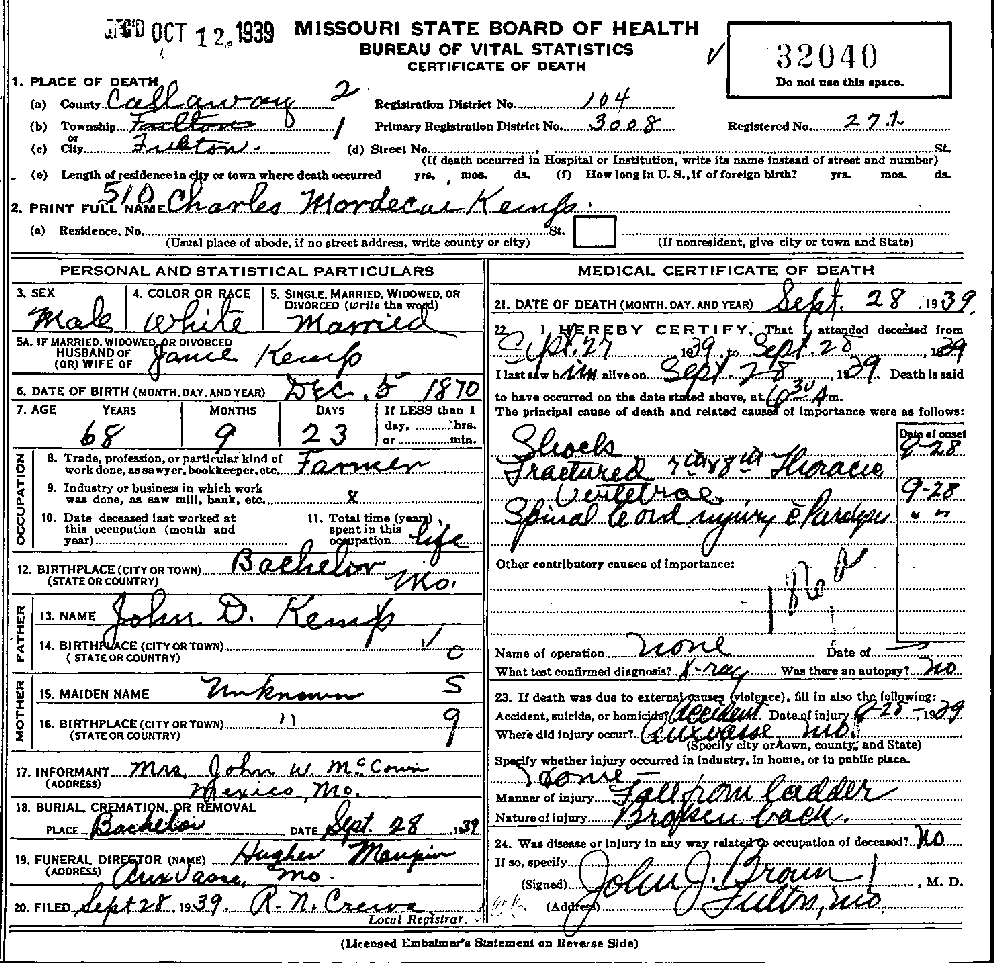 REC'D OCT 12 1939
MISSOURI STATE BOARD OF HEALTH
BUREAU OF VITAL STATISTICS
CERTIFICATE OF DEATH
32040
Do not use this space.
1. PLACE OF DEATH
(a) County Callaway 2
Registration District No. 104
(b) Township Fulton 1
Primary Registration District No. 3008
Registered No. 271
or
(c) City Fulton.
(d) Street No. St.
(If death occurred in Hospital or Institution, write its name instead of street and number)
(e) Length of residence in city or town where death occurred yrs. mos. ds. (f) How long in U. S., if of foreign birth? yrs. mos. ds.
510
2. PRINT FULL NAME Charles Mordecai Kemp.
(a) Residence, No. St.
(Usual place of abode, if no street address, write county or city)
(If nonresident, give city or town and State)
PERSONAL AND STATISTICAL PARTICULARS
3. SEX Male
4. COLOR OR RACE White
5. SINGLE, MARRIED, WIDOWED, OR DIVORCED (write the word) Married
5A. IF MARRIED, WIDOWED, OR DIVORCED
HUSBAND OF
(OR) WIFE OF Janie Kemp
6. DATE OF BIRTH (MONTH, DAY, AND YEAR) Dec. 5 1870
7. AGE YEARS MONTHS DAYS If LESS than 1
day, hrs.
or min.
68 9 23
OCCUPATION
8. Trade, profession, or particular kind of
work done, as sawyer, bookkeeper, etc. Farmer
9. Industry or business in which work
was done, as saw mill, bank, etc. x
10. Date deceased last worked at
this occupation (month and
year)
11. Total time (years)
spent in this
occupation life
12. BIRTHPLACE (CITY OR TOWN) Bachelor
(STATE OR COUNTRY) Mo.
FATHER
13. NAME John D. Kemp
14. BIRTHPLACE (CITY OR TOWN)
(STATE OR COUNTRY) 0
MOTHER
15. MAIDEN NAME Unknown 5
16. BIRTHPLACE (CITY OR TOWN) " 9
(STATE OR COUNTRY)
17. INFORMANT Mrs. John W. McCown
(ADDRESS) Mexico, Mo.
18. BURIAL, CREMATION, OR REMOVAL
PLACE Bachelor DATE Sept. 28, 1939
19. FUNERAL DIRECTOR (NAME) Hughes Maupin
(ADDRESS) Auxvasse, Mo.
20. FILED Sept 28, 1939. R. N. Crews
Local Registrar.
MEDICAL CERTIFICATE OF DEATH
21. DATE OF DEATH (MONTH, DAY, AND YEAR) Sept. 28, 1939.
22. I HEREBY CERTIFY, That I attended deceased from
Sept. 27 1939 to Sept 28, 1939
I last saw him alive on Sept. 28, 1939. Death is said
to have occurred on the date stated above, at 6:30 A m.
The principal cause of death and related causes of importance were as follows:
Date of onset
Shock 9-28
Fractured 7th & 8th Thoracic
Vertebrae 9-28
Spinal Cord injury c Paralysis " "
Other contributory causes of importance:
Name of operation none Date of
What test confirmed diagnosis? X-ray Was there an autopsy? No
23. If death was due to external causes (violence), fill in also the following:
Accident, suicide, or homicide? Accident. Date of injury 9-28-, 1939
Where did injury occur? Auxvasse Mo.
(Specify city or town, county, and State)
Specify whether injury occurred in industry, in home, or in public place.
Home -
Manner of injury Fall from ladder
Nature of injury Broken back.
24. Was disease or injury in any way related to occupation of deceased? No
If so, specify
(Signed) John J. Brown, M. D.
(Address) Fulton, Mo
(Licensed Embalmer's Statement on Reverse Side)